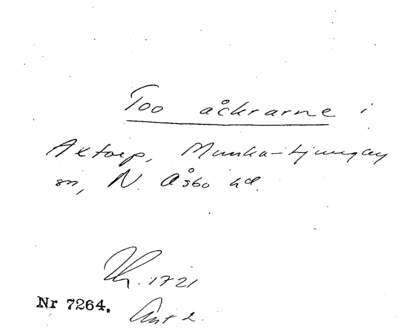 Too åckrarne i
Axtorp, Munka-Ljungby
sn, N. Åsbo hd.
1721
Nr 7264. Ant 2.